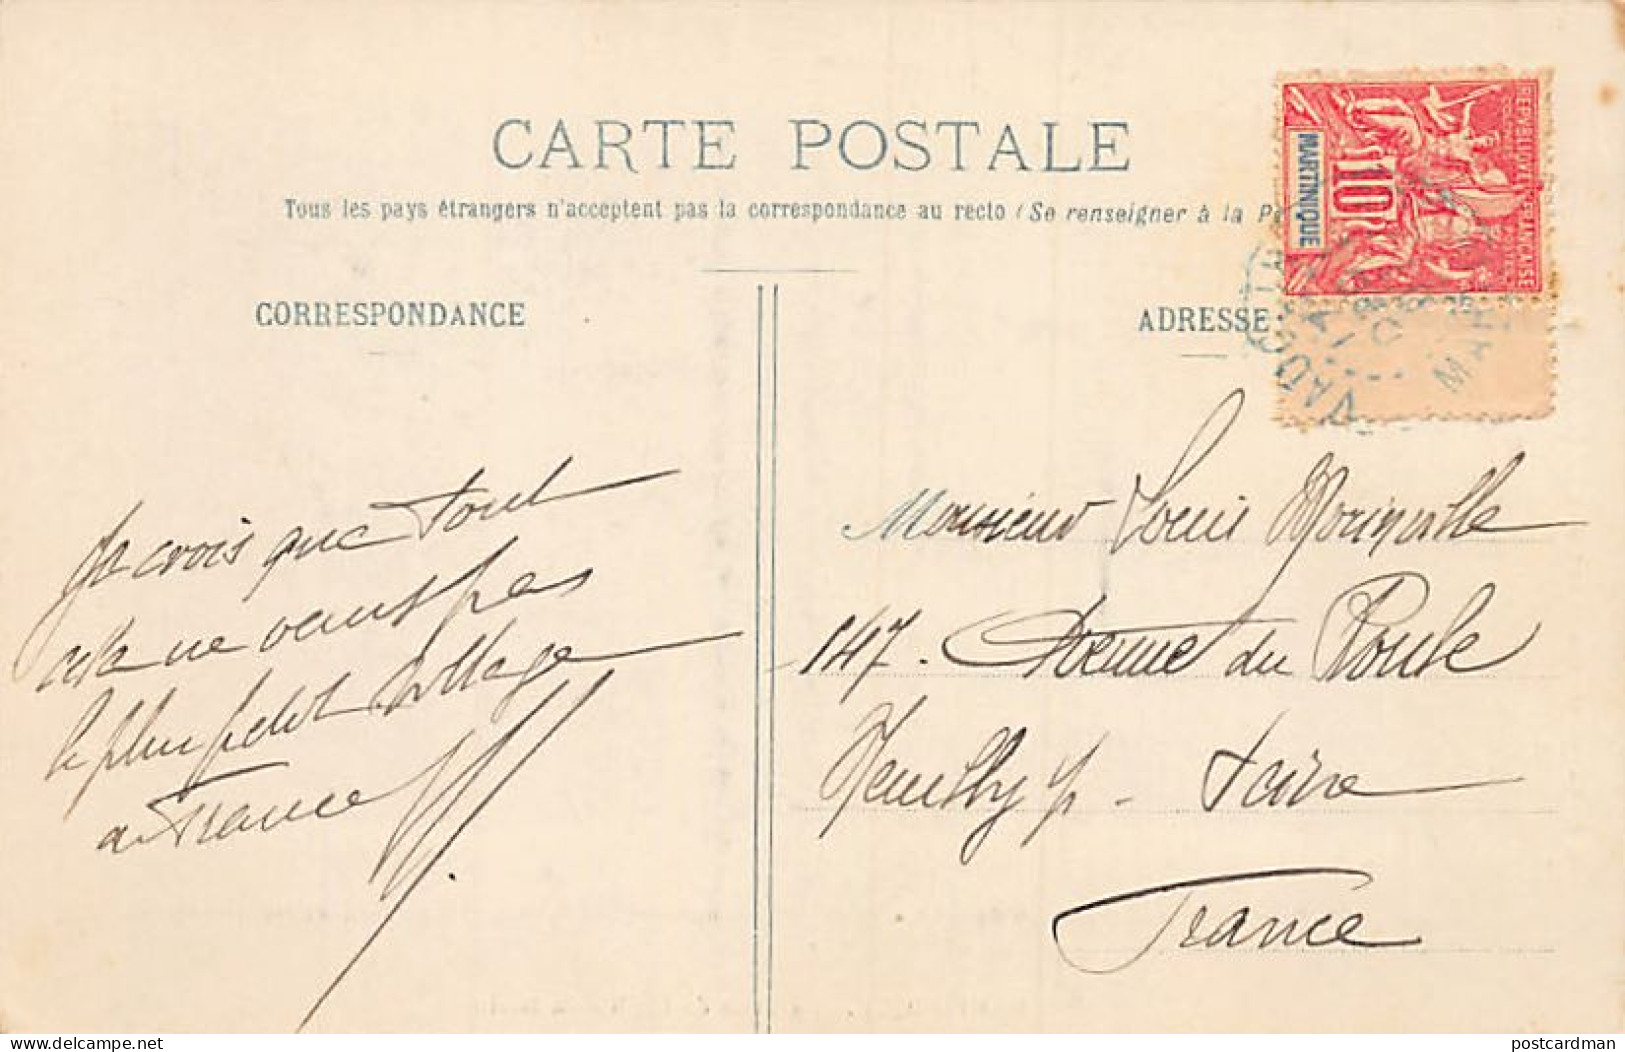 CARTE POSTALE
Tous les pays étrangers n'acceptent pas la correspondance au recto (Se renseigner à la P
CORRESPONDANCE
ADRESSE
REPUBLIQUE FRANÇAISE
COLONIES POSTES
MARTINIQUE
10
VAUCLIN
MAR
Je crois que tout
cela ne vaut pas
le plus petit village
de France
Monsieur Louis
147. Avenue du Roule
Neuilly s/- Seine
France
www.delcampe.net
postcardman